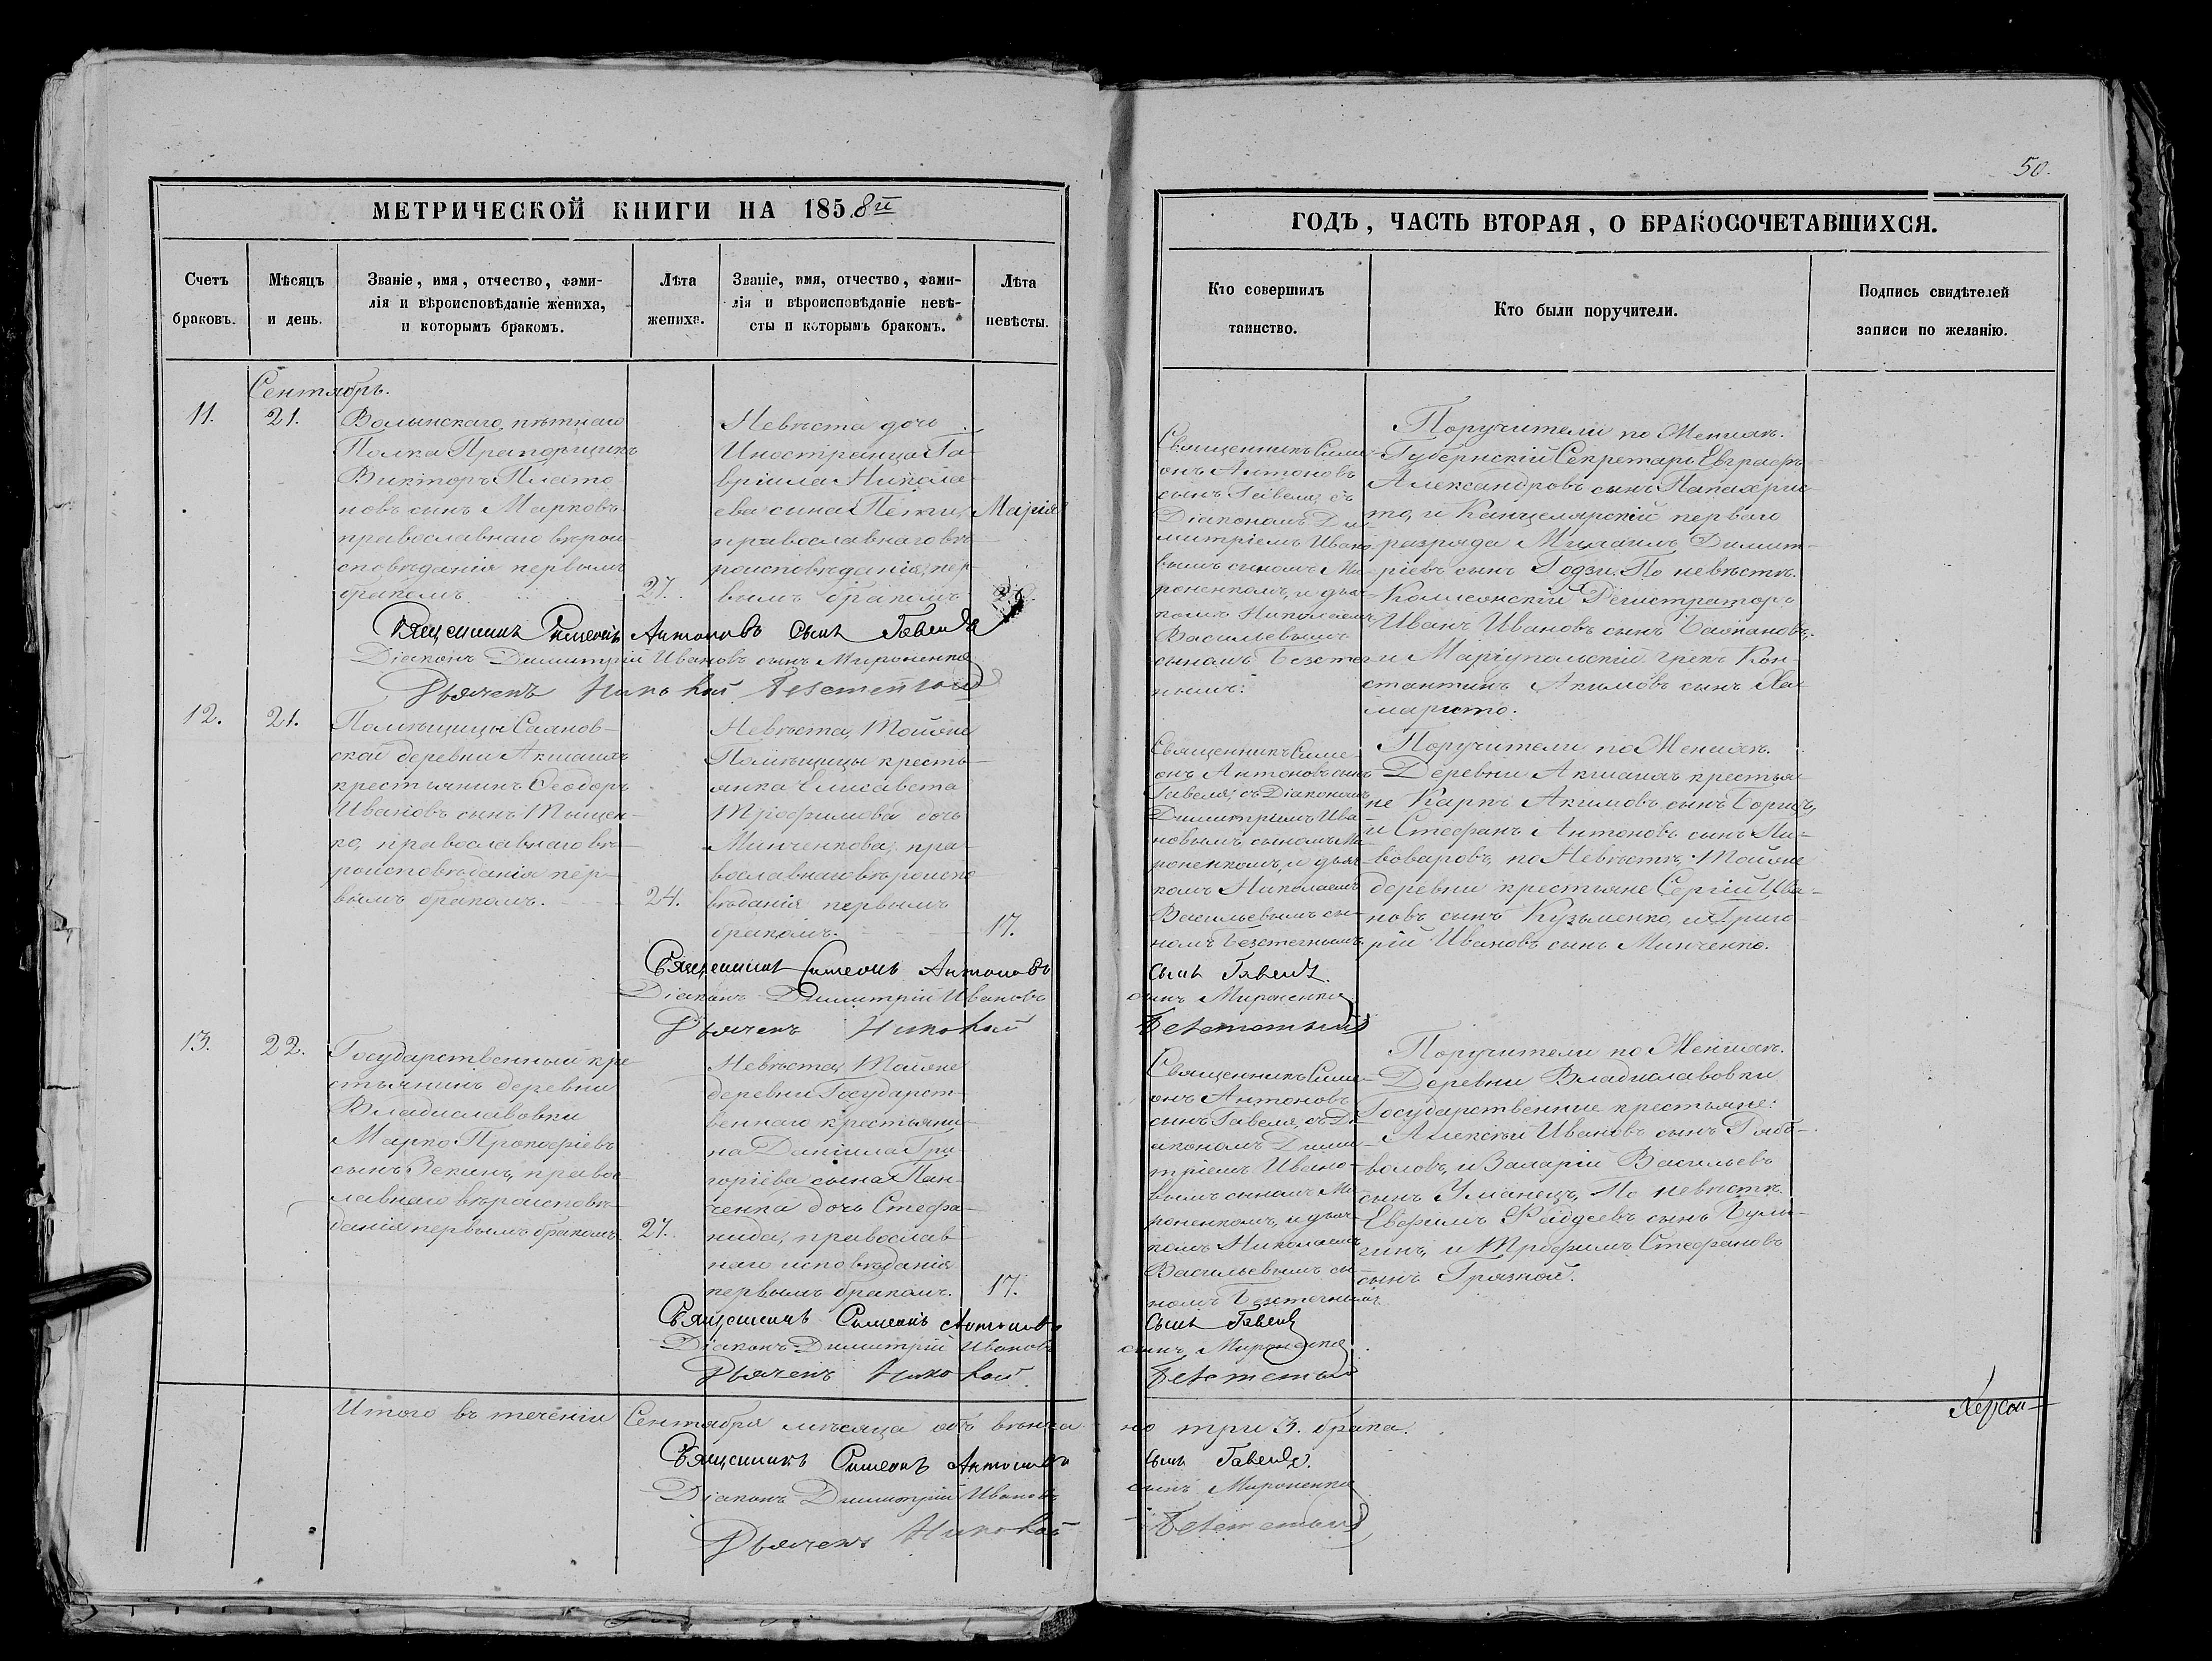 50.
МЕТРИЧЕСКОЙ КНИГИ НА 1858й
ГОДЪ, ЧАСТЬ ВТОРАЯ, О БРАКОСОЧЕТАВШИХСЯ.
Счетъ
браковъ.
Мѣсяцъ
и день.
Званіе, имя, отчество, фами-
лія и вѣроисповѣданіе жениха,
и которымъ бракомъ.
Лѣта
жениха.
Званіе, имя, отчество, фами-
лія и вѣроисповѣданіе невѣ-
сты и которымъ бракомъ.
Лѣта
невѣсты.
Кто совершилъ
таинство.
Кто были поручители.
Подпись свидѣтелей
записи по желанію.
Сентябрь.
11.
21.
Волынскаго пѣтнаго
Полка Прапорщикъ
Викторъ Плато
новъ сынъ Марковъ
православнаго вѣрои
сповѣданія первымъ
бракомъ
27.
Невѣста дочь
Иностранца Га
вріила Никола
ева сына
Марія
православнаго вѣ
роисповѣданія, пер
вымъ бракомъ
Священникъ Симе
онъ Антоновъ
сынъ Гавеля, съ
Діакономъ Ди
митріемъ Ивано
вымъ сыномъ Ми
роненкомъ, и дьяч
комъ Николаемъ
Васильевымъ
сыномъ
Поручители по Женихѣ.
Губернскій Секретарь Евграфъ
Александровъ сынъ Папахрис
то, и Канцелярскій перваго
разряда Михаилъ Димит-
ріевъ сынъ Годзи. По невѣстѣ.
Коллежскій Регистраторъ
Иванъ Ивановъ сынъ
и Маріупольскій грекъ Кон-
стантинъ Акимовъ сынъ Ха-
Священникъ Симеонъ Антоновъ сынъ Гавеля
Діаконъ Димитрій Ивановъ сынъ Мироненко
Дьячекъ Николай
12.
21.
Помѣщицы
ской деревни
крестьянинъ Ѳеодоръ
Ивановъ сынъ Тыщен-
ко, православнаго вѣ-
роисповѣданія пер-
вымъ бракомъ.
24.
Невѣста, Тойже
Помѣщицы кресть-
янка Елисавета
Трофимова дочь
Минченкова, пра-
вославнаго вѣроиспо
вѣданія первымъ
бракомъ.
17.
Священникъ Симе-
онъ Антоновъ сынъ
Гавеля, съ Діакономъ
Димитріемъ Ива-
новымъ сыномъ Ми
роненкомъ, и дьяч-
комъ Николаемъ
Васильевымъ сы-
номъ
Поручители по Женихѣ.
Деревни крестья-
не Карпъ Акимовъ сынъ
и Стефанъ Антоновъ сынъ Пи-
воваровъ, по Невѣстѣ: Тойже
деревни крестьяне Сергій Ива-
новъ сынъ Кузьменко, и Григо-
рій Ивановъ сынъ Минченко.
Священникъ Симеонъ Антоновъ сынъ Гавеля.
Діаконъ Димитрій Ивановъ сынъ Мироненко
Дьячекъ Николай
13.
22.
Государственный кре-
стьянинъ деревни
Владиславовки
Марко Прокофіевъ
сынъ Зекинъ, правос-
лавнаго вѣроисповѣ-
данія первымъ бракомъ.
27.
Невѣста, Тойже
деревни Государст-
веннаго крестьяни-
на Даніила Гри-
горіева сына Пан-
ченка дочь Стефа-
нида, православ-
наго исповѣданія
первымъ бракомъ.
17.
Священникъ Симе-
онъ Антоновъ
сынъ Гавеля, съ Ді
акономъ Дими-
тріемъ Ивано-
вымъ сыномъ Ми-
роненкомъ, и дьяч-
комъ Николаемъ
Васильевымъ сы-
номъ
Поручители по Женихѣ.
Деревни Владиславовки
Государственные крестьяне:
Алексѣй Ивановъ сынъ Ряб-
воловъ, и Захарій Васильевъ
сынъ Уманецъ, По невѣстѣ.
Евфимъ Фадѣевъ сынъ Були-
гинъ, и Трофимъ Стефановъ
сынъ Грязной.
Священникъ Симеонъ Антоновъ сынъ Гавеля
Діаконъ Димитрій Ивановъ сынъ Мироненко
Дьячекъ Николай
Итого въ теченіи Сентября мѣсяца обвѣнча но три 3. брака.
Священникъ Симеонъ Антоновъ сынъ Гавеля.
Діаконъ Димитрій Ивановъ сынъ Мироненко
Дьячекъ Николай